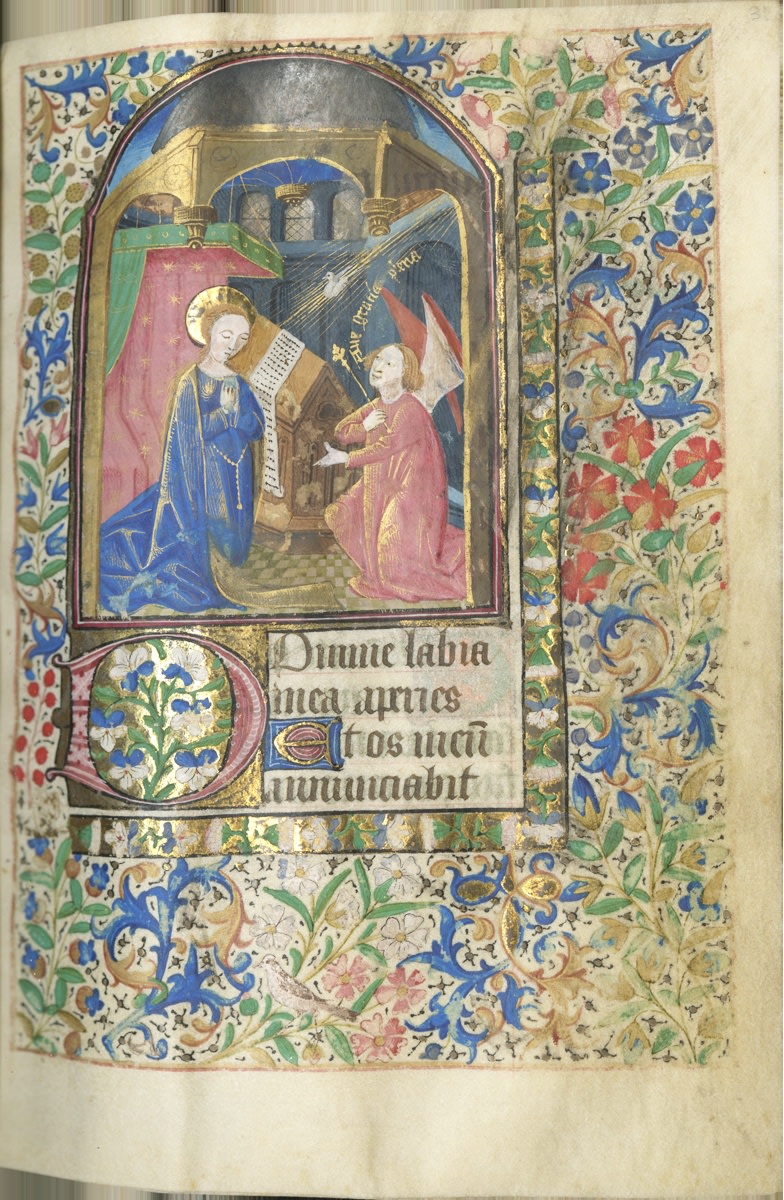 aue gracia plena
Domine labia
mea aperies
Et os meū
annunciabit